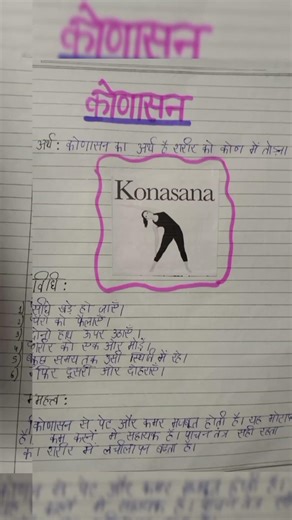 कोणासन
कोणासन
अर्थ : कोणासन का अर्थ है शरीर को कोण में तोड़ना
Konasana
विधि :
1) सीधे खड़े हो जाएँ।
पैरों को फैलाएँ।
दोनों हाथ ऊपर उठाएँ।
4 शरीर को एक ओर मोड़ें।
5 कुछ समय तक उसी स्थिति में रहें।
6) फिर दूसरी ओर दोहराएँ।
महत्व :
कोणासन से पेट और कमर मजबूत होती है। यह मोटापा
है। कम करने में सहायक है। पाचन तंत्र सही रहता
के। शरीर में लचीलापन बढ़ता है।